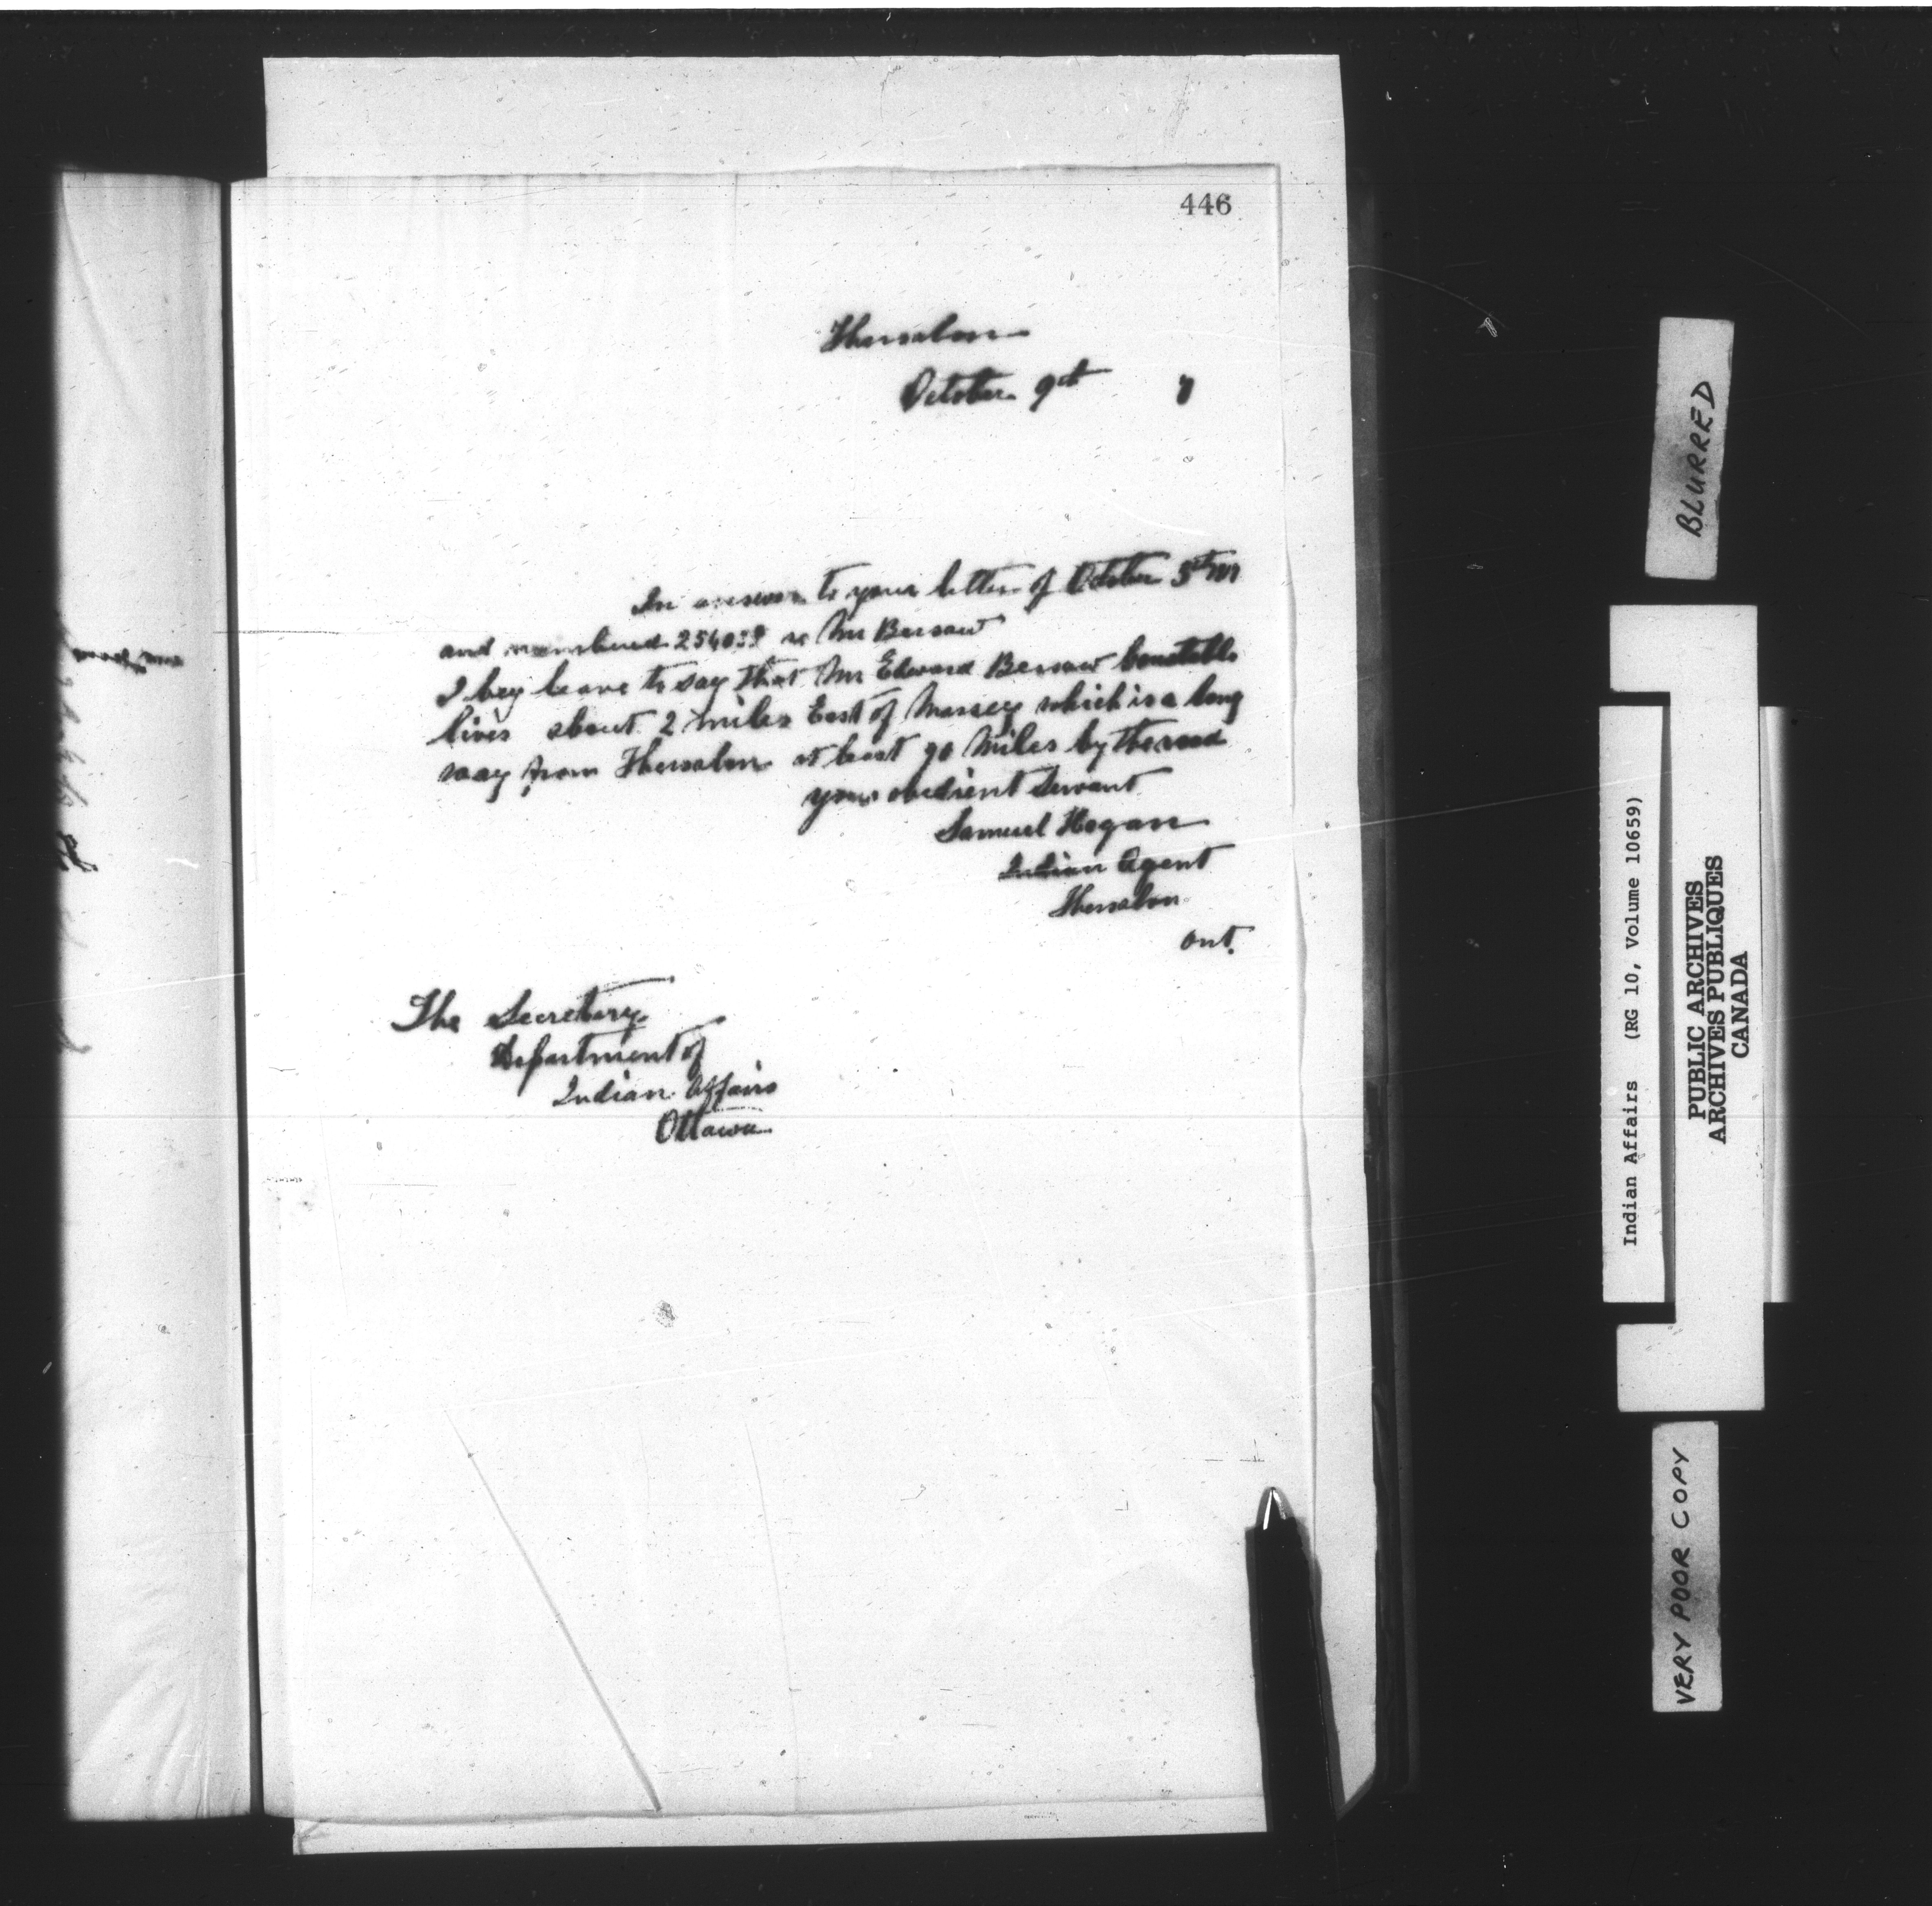 446
Thessalon
October 9th 7
In answer to your letter of October 5th
and numbered 254039 re Mr Bessaw
I beg leave to say that Mr Edward Bessaw Constable
lives about 2 miles East of Massey which is a long
way from Thessalon at least 90 Miles by the road
your obedient Servant
Samuel Hagan
Indian Agent
Thessalon
Ont.
The Secretary
Department of
Indian Affairs
Ottawa
BLURRED
Indian Affairs (RG 10, Volume 10659)
PUBLIC ARCHIVES
ARCHIVES PUBLIQUES
CANADA
VERY POOR COPY